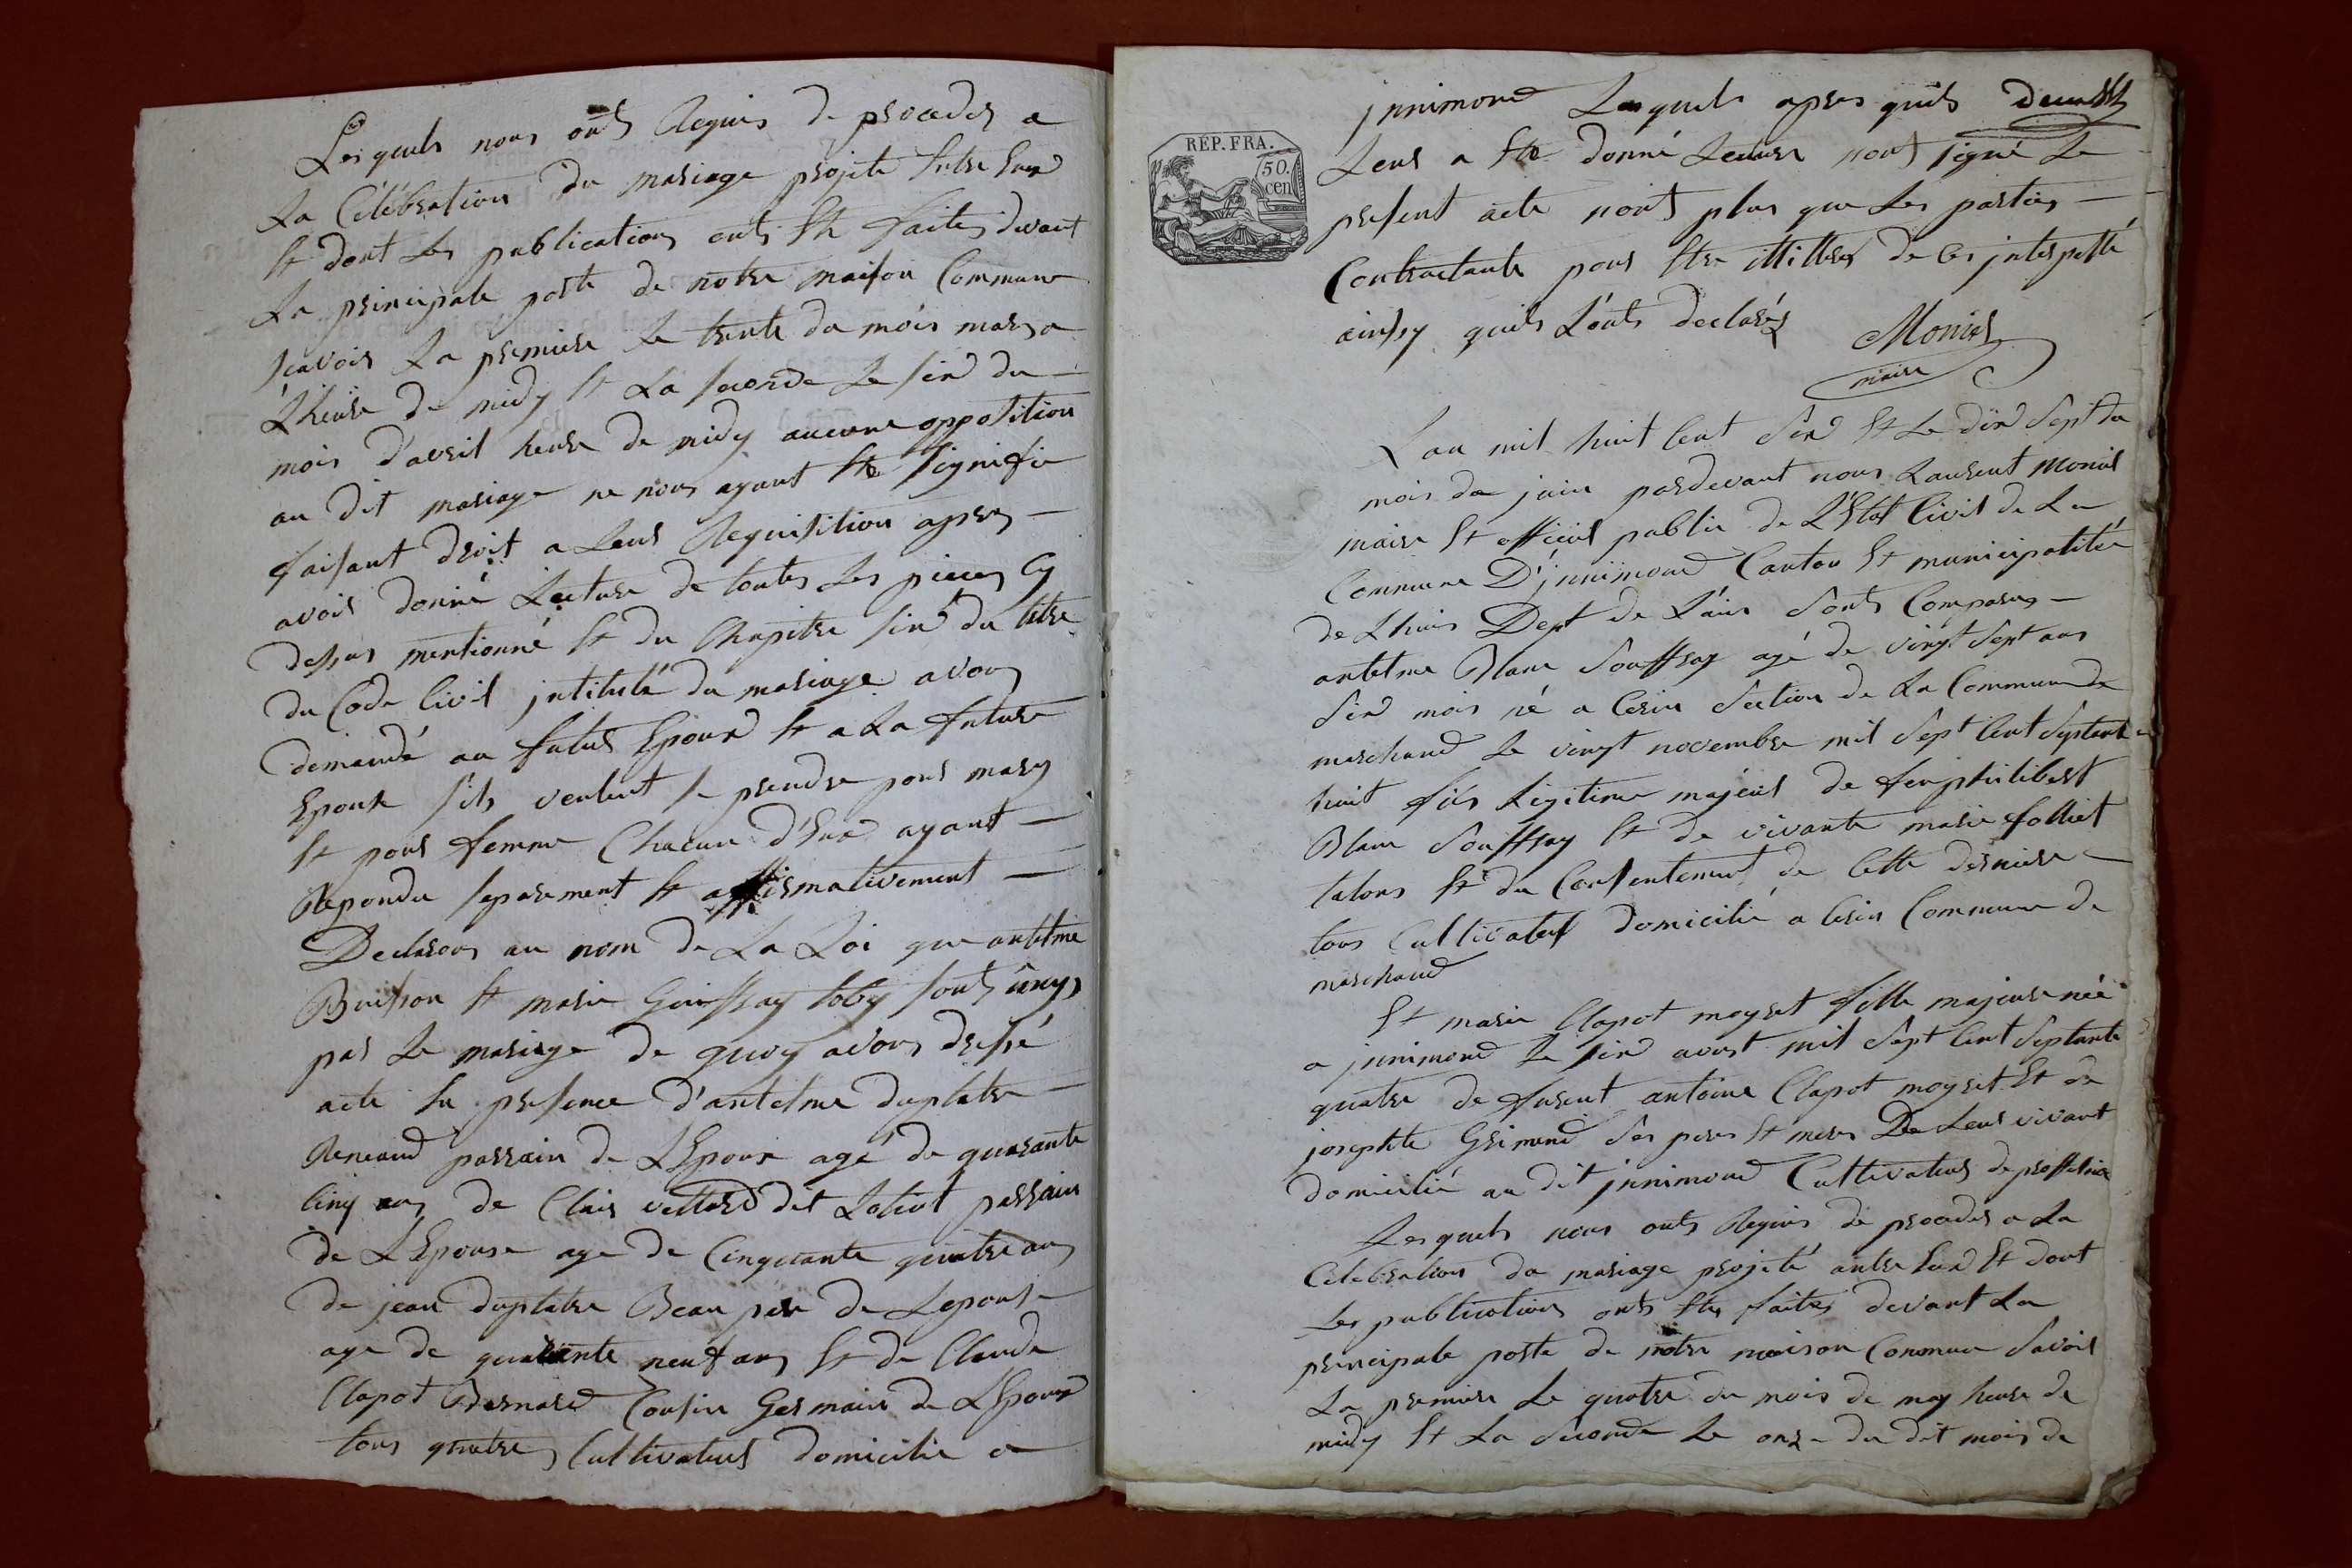 Lesquels nous onts Requis de proceder a
La Célébration du mariage projeté Entre Eux
Et dont Les publications onts Eté faites devant
La principale porte de notre maison Commune
scavoir La premiere Le trente du mois mars a
L'heure de midy Et La seconde Le six du
mois d'avril heure de midy aucune opposition
au dit mariage ne nous ayant Eté signifie
faisant droit a Leur Requisition apres
avoir donné Lecture de toutes Les pieces Cy
dessus mentionné Et du Chapitre six du titre
du Code Civil jntitulé du mariage avons
demandé au futur Epoux Et a La future
Epouse s'ils veulent se prendre pour mary
Et pour femme Chacun d'Eux ayant
Repondu separement Et affirmativement
Declarons au nom de La Loi que antelme
Buisson Et marie Guiffray toby sonts unys
par Le mariage de quoy avons dressé
acte En presence d'antelme duplatre
Renaud parrain de LEpoux agé de quarante
Cinq ans de Clair vettard dit Lotiot parrain
de LEpouse age de Cinquante quatre ans
de jean duplatre Beau pere de Lepouse
age de quarante neuf ans Et de Claude
Clapot Bernard Cousin Germain de LEpoux
tous quatre Cultivateurs domicilie a
RÉP. FRA.
50.
cen
jnnimond Lesquels apres quils
Leur a Eté donné Lecture nonts signé Le
present acte nonts plus que Les parties
Contractante pour Etre illittres de Ce jnterpellé
ainsy quils Lonts declarés
Monier
maire
L'an mil huit Cent Six Et Le dix Sept du
mois de juin pardevant nous Laurent Monier
maire Et officier public de L'Etat Civil de La
Commune D'jnnimond Canton Et municipalitée
de Lhuis Dept de L'ain Sonts Comparus
antelme Blanc Souffray agé de vingt Sept ans
Six mois né a Cerin Section de La Commune de
marchand Le vingt novembre mil Sept Cent Septante
huit fils Legitime majeur de feu philibert
Blanc Souffray Et de vivante marie folliet
talons Et du Consentement de Cette derniere
tous Cultivateur domicilié a Cerin Commune de
marchand
Et marie Clapot moyret fille majeure née
a jnnimond Le six avout mil Sept Cent Septante
quatre de furent antoine Clapot moyret Et de
josephte Grimond Ses peres Et meres De Leur vivant
domicilié au dit jnnimond Cultivateurs de proffession
Lesquels nous onts Requis de proceder a La
Celebration du mariage projeté antre Eux Et dont
Les publications onts Etes faites devant La
principale porte de notre maison Commune Savoir
La premiere Le quatre du mois de may heure de
midy Et La Seconde Le onze du dit mois de